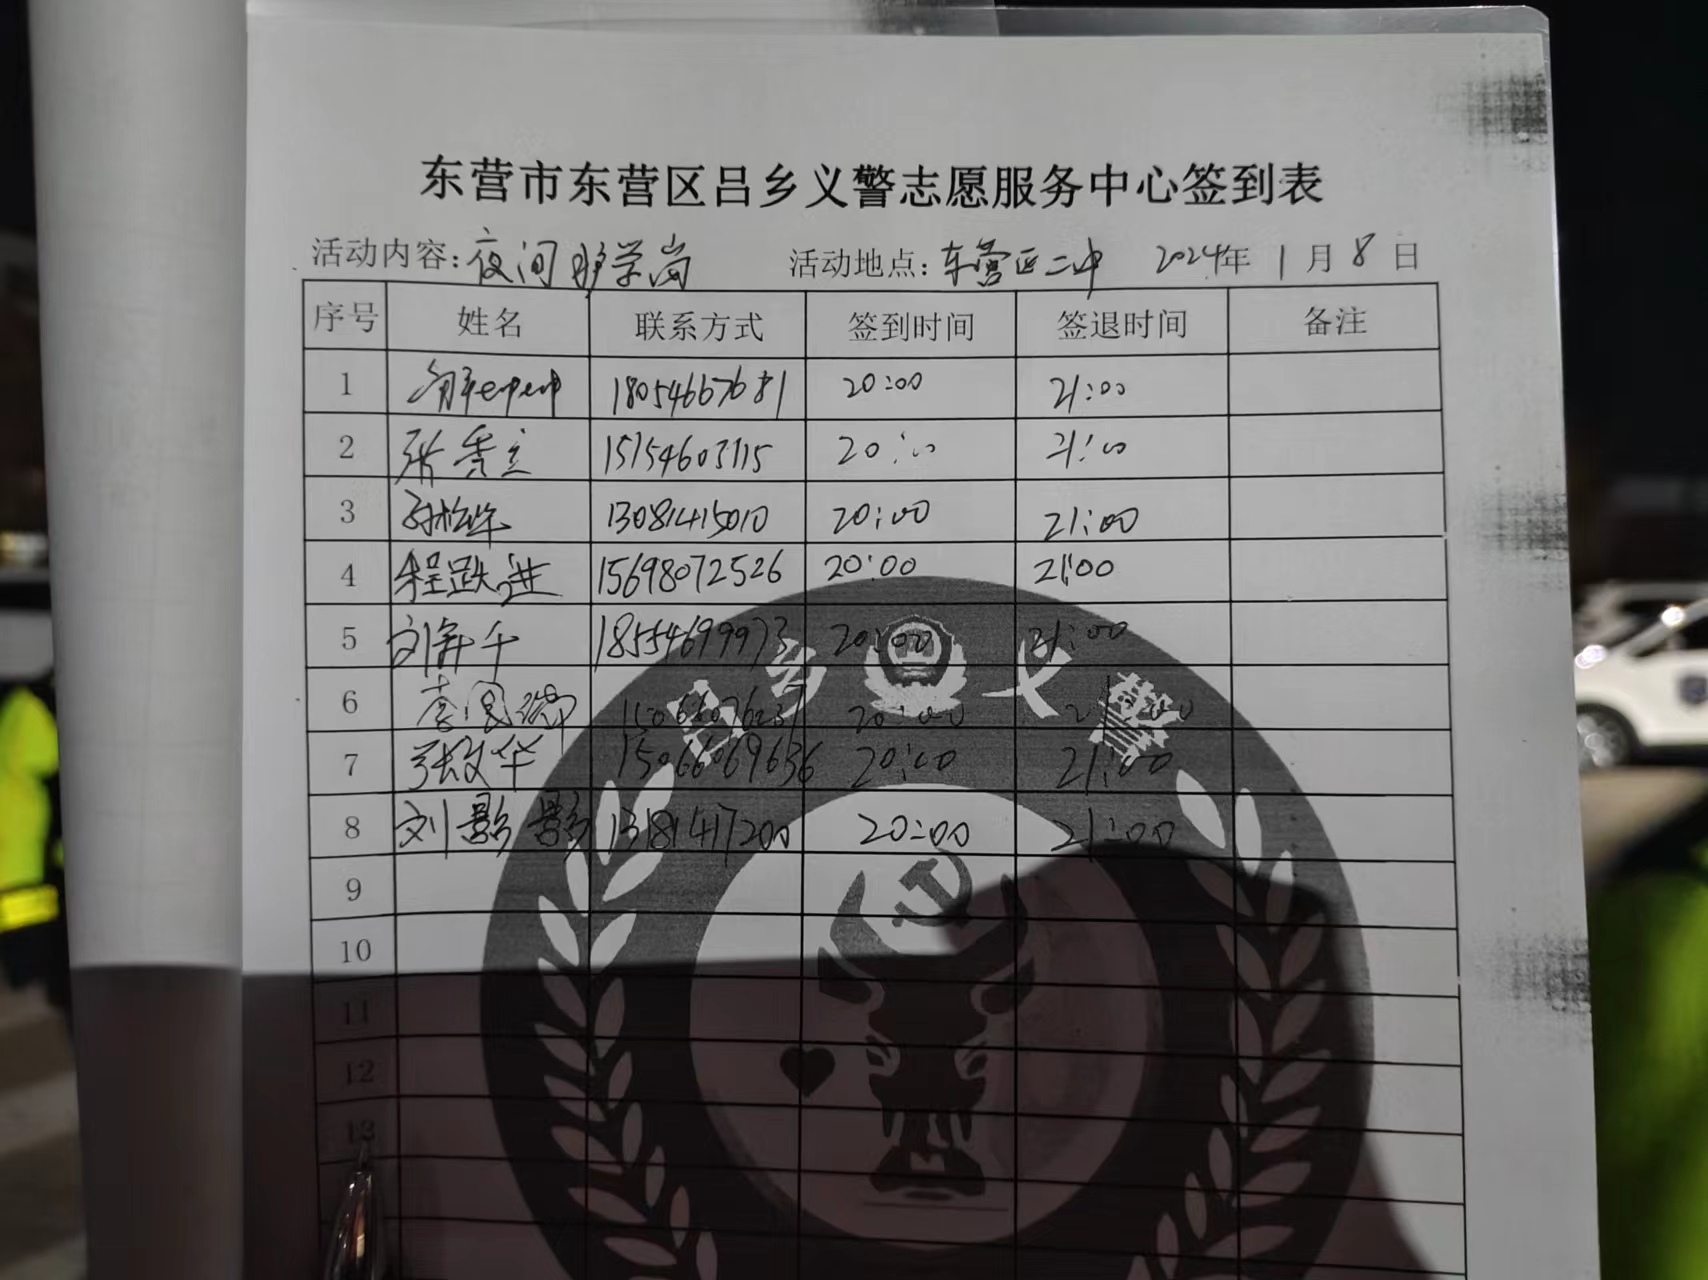 东营市东营区吕乡义警志愿服务中心签到表
活动内容:夜间护学岗 活动地点:东营区二中 2024年1月8日
序号 姓名 联系方式 签到时间 签退时间 备注
1 18054667681 20:00 21:00
2 张秀立 15154603115 20:00 21:00
3 13081415010 20:00 21:00
4 程跃进 15698072526 20:00 21:00
5 18554699973 20:00 21:00
6 李国瑞 20:00 21:00
7 张文华 15066069636 20:00 21:00
8 刘影影 13181417200 20:00 21:00
9
10
11
12
13
吕乡义警